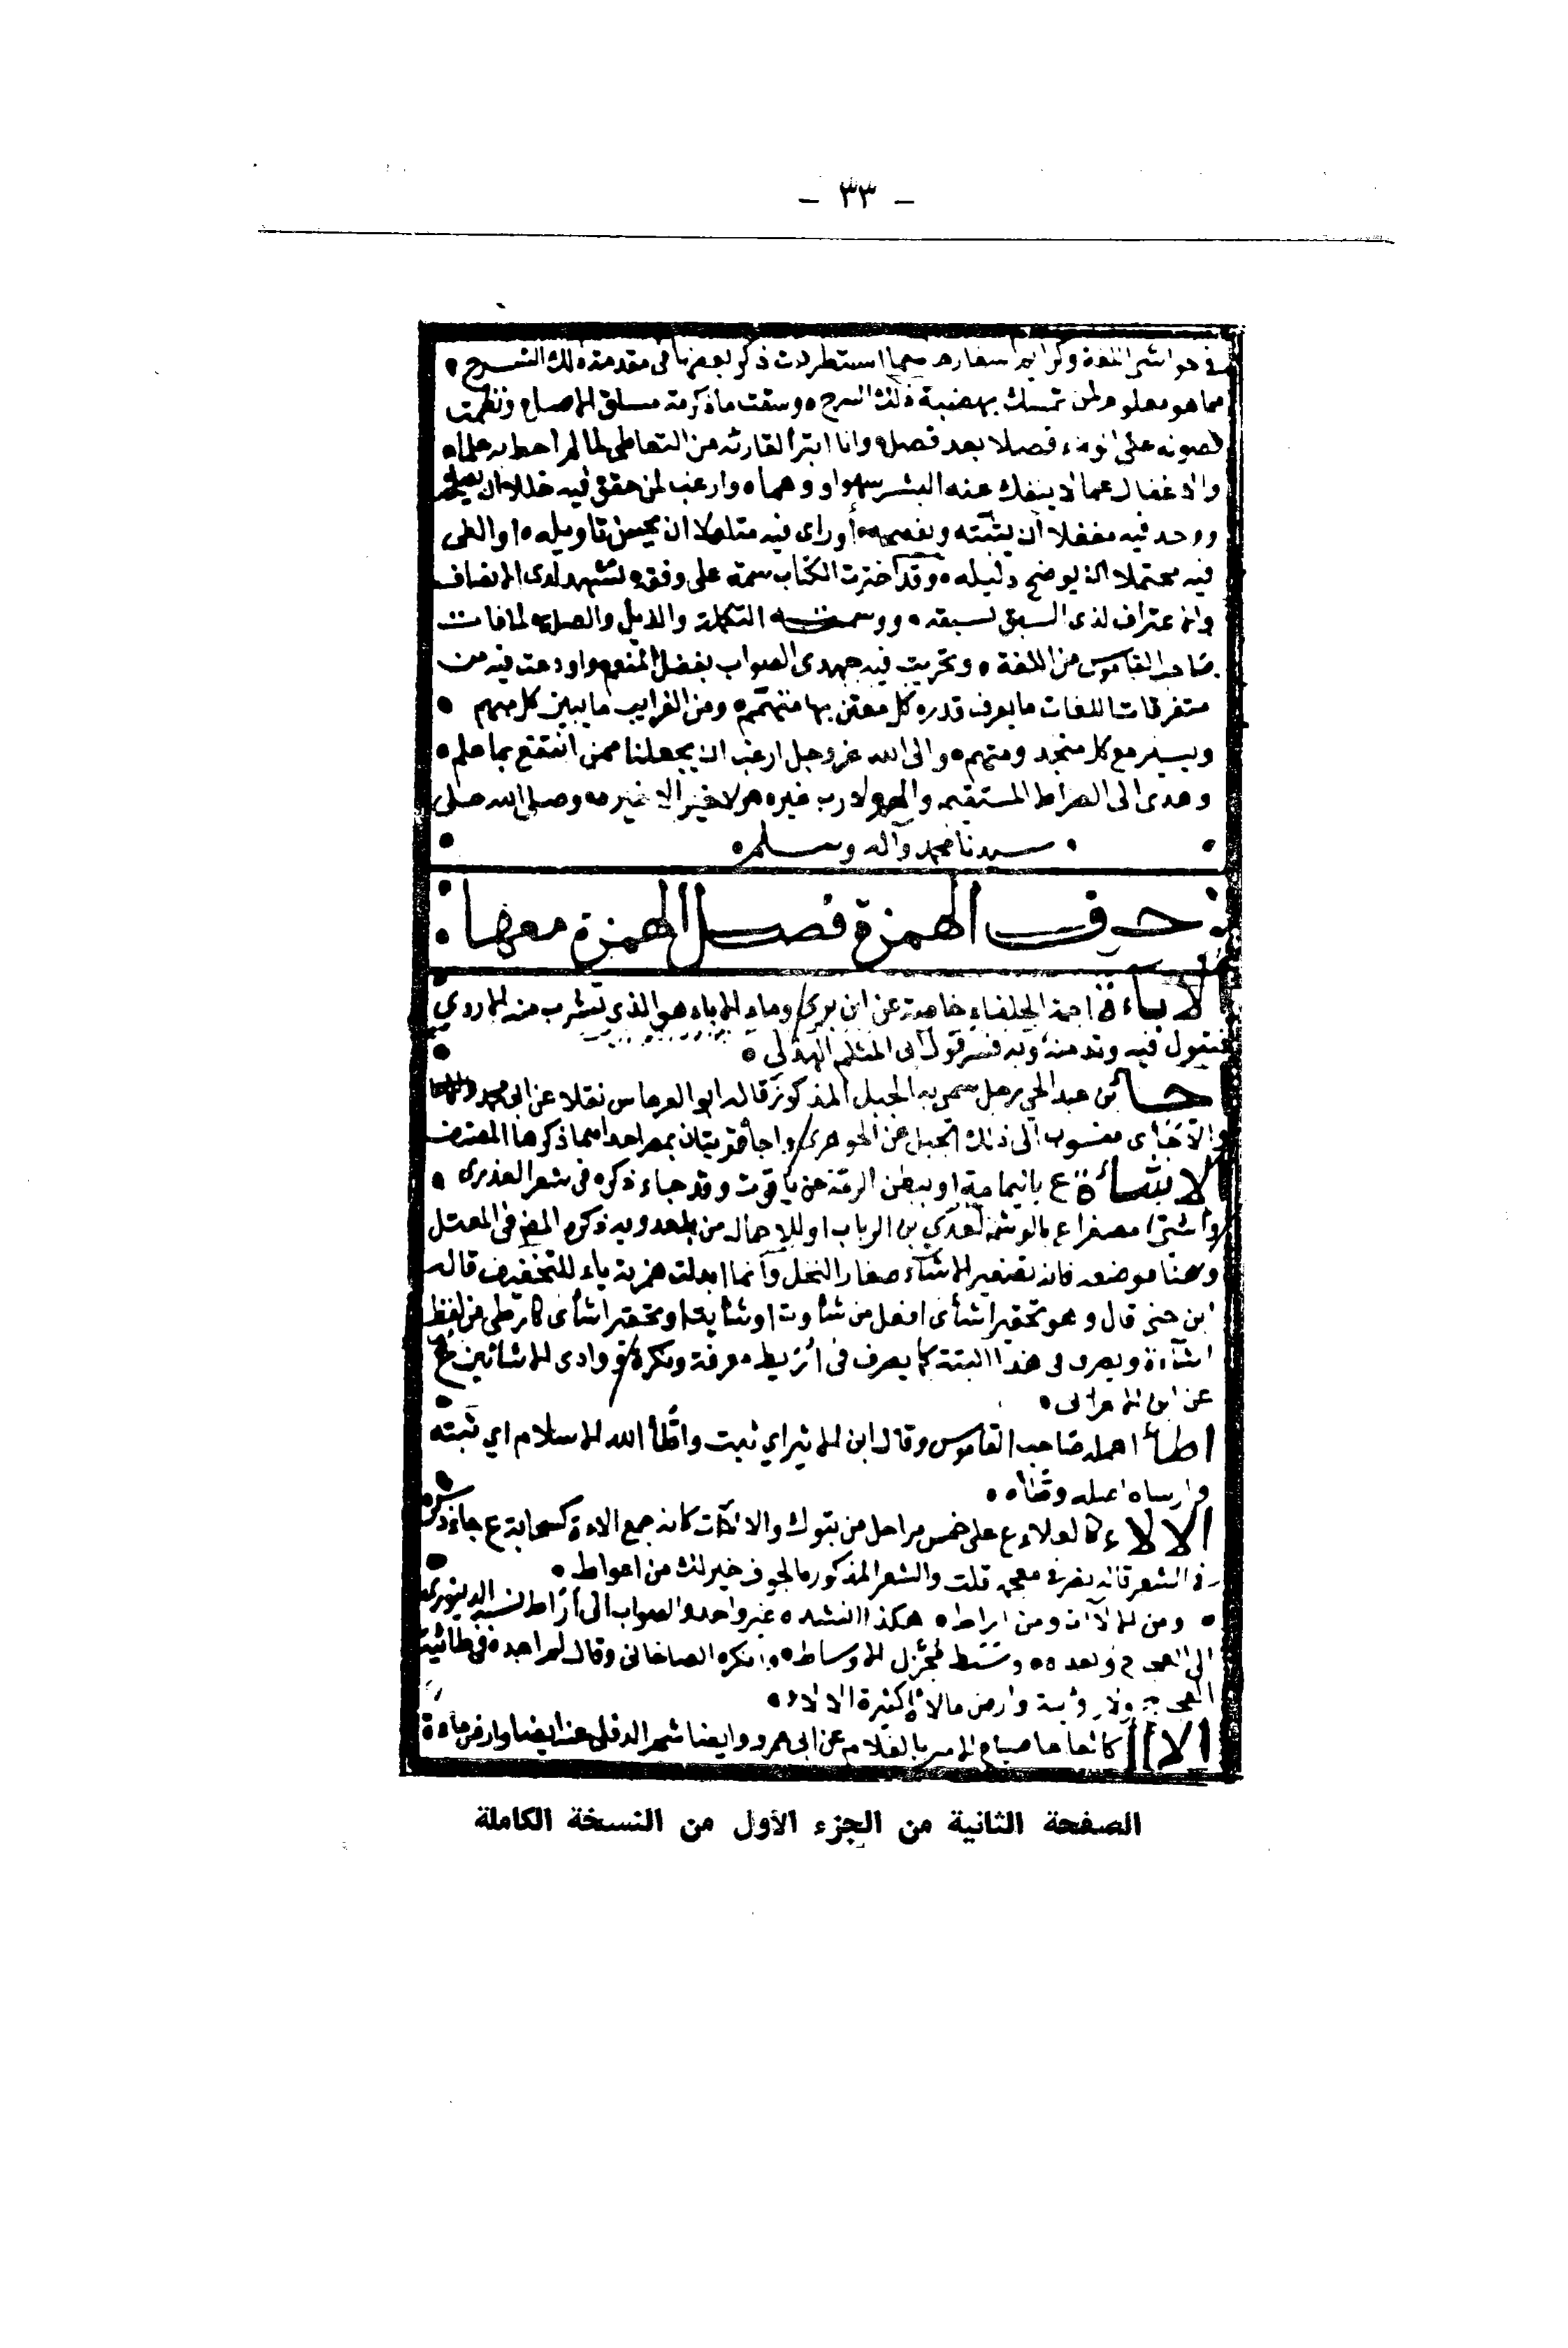 - ٣٣ -
في حواشي اللغة وكرايم اسفارهم مما استطردت ذكر بعضها في مقدمة ذلك الشرح
مما هو معلوم لمن تمسك بهضبة ذلك السرح وسقت ما ذكرته مساق الاصل ونظمت
فصوله على فصلا بعد فصل وانا ابرأ لقارئه من التعاطي لما لم احط به علما
والاغفال عما لا ينفك عنه البشر سهوا ووهما وارغب لمن حقق فيه خللا ان يصلحه
ووجد فيه مغفلا ان يثبته ويفصحه أو راى فيه متاملا ان يحسن تاويله او الفى
فيه محتملا ان يوضح دليله وقد اخترت الكتاب سمة على وفقه لتشهد لدى الانصاف
والاعتراف لذى السبق لسبقه ووسمته التكملة والذيل والصلة لما فات
صاحب القاموس من اللغة وتحريت فيه جهدى الصواب بفضل المنعم واودعت فيه من
متفرقات اللغات ما يعرف قدره كل معتن بها متهمم ومن الغرايب ما يبين كل مبهم
ويسير مع كل منجد ومتهم والى الله عز وجل ارغب ان يجعلنا ممن انتفع بما علم
وهدى الى الصراط المستقيم والهم لا رب غيره ولا خير الا خيره وصلى الله على
سيدنا محمد وآله وسلم
حرف الهمزة فصل الهمزة معها
الاباءة اجمة الحلفاء خاصة عن ابن بري وماء الاباء هو الذي تشرب منه الاروى
فتبول فيه وتدمنه وبه فسر قول ابى المثلم الهذلي
أجأ بن عبد الحي رجل سمى به الجبل المذكور قاله ابو العرماس نقلا عن ابى محمد
والاجاى منسوب الى ذلك الجبل عن الجوهرى واجأ قريتان بمصر احداهما ذكرها المصنف
الاشاءة ع باليمامة او ببطن الرمة عن ياقوت وقد جاء ذكره في شعر العذرى
واشئ مصغرا ع بالوشم لعدي بن الرباب او للاحمال من بلعدويه ذكره المص في المعتل
وهنا موضعه فانه تصغير الاشآء صغار النخل وانما ابدلت همزته ياء للتخفيف قاله
ابن جنى قال وهو تحقير اشأى افعل من شأوت او شأيت او تحقير اشأى كارطى من لفظ
اشآءة ويصرف في هذا البتة كما يصرف في أريط معرفة ونكرة و وادى الاشائين ع
عن ابن الاعرابى
اطأ اهمله صاحب القاموس وقال ابن الاثير اي ثبت واطأ الله الاسلام اي ثبته
وارساه اصله وطأه
الالاء كالعلاء ع على خمس مراحل من تبوك والالآت كانه جمع الاءة كسحابة ع جاء ذكره
في الشعر قاله نصر في معجمه قلت والشعر المذكور الجوف خير لك من اغواط
ومن الاآت ومن اراط هكذا انشده غير واحد والصواب الى أراط نسبه الدينورى
الى العجاج وبعده وشطط لمجزل الاوساط وانكره الصاغانى وقال لم اجده في طائية
العجاج ولا رؤبة وارض مالاة كثيرة الالاء
الااأ كالعاعا صياح الامير بالغلام عن ابى عمرو وايضا شجر الدفلى عنه ايضا وارض ماءة
الصفحة الثانية من الجزء الأول من النسخة الكاملة